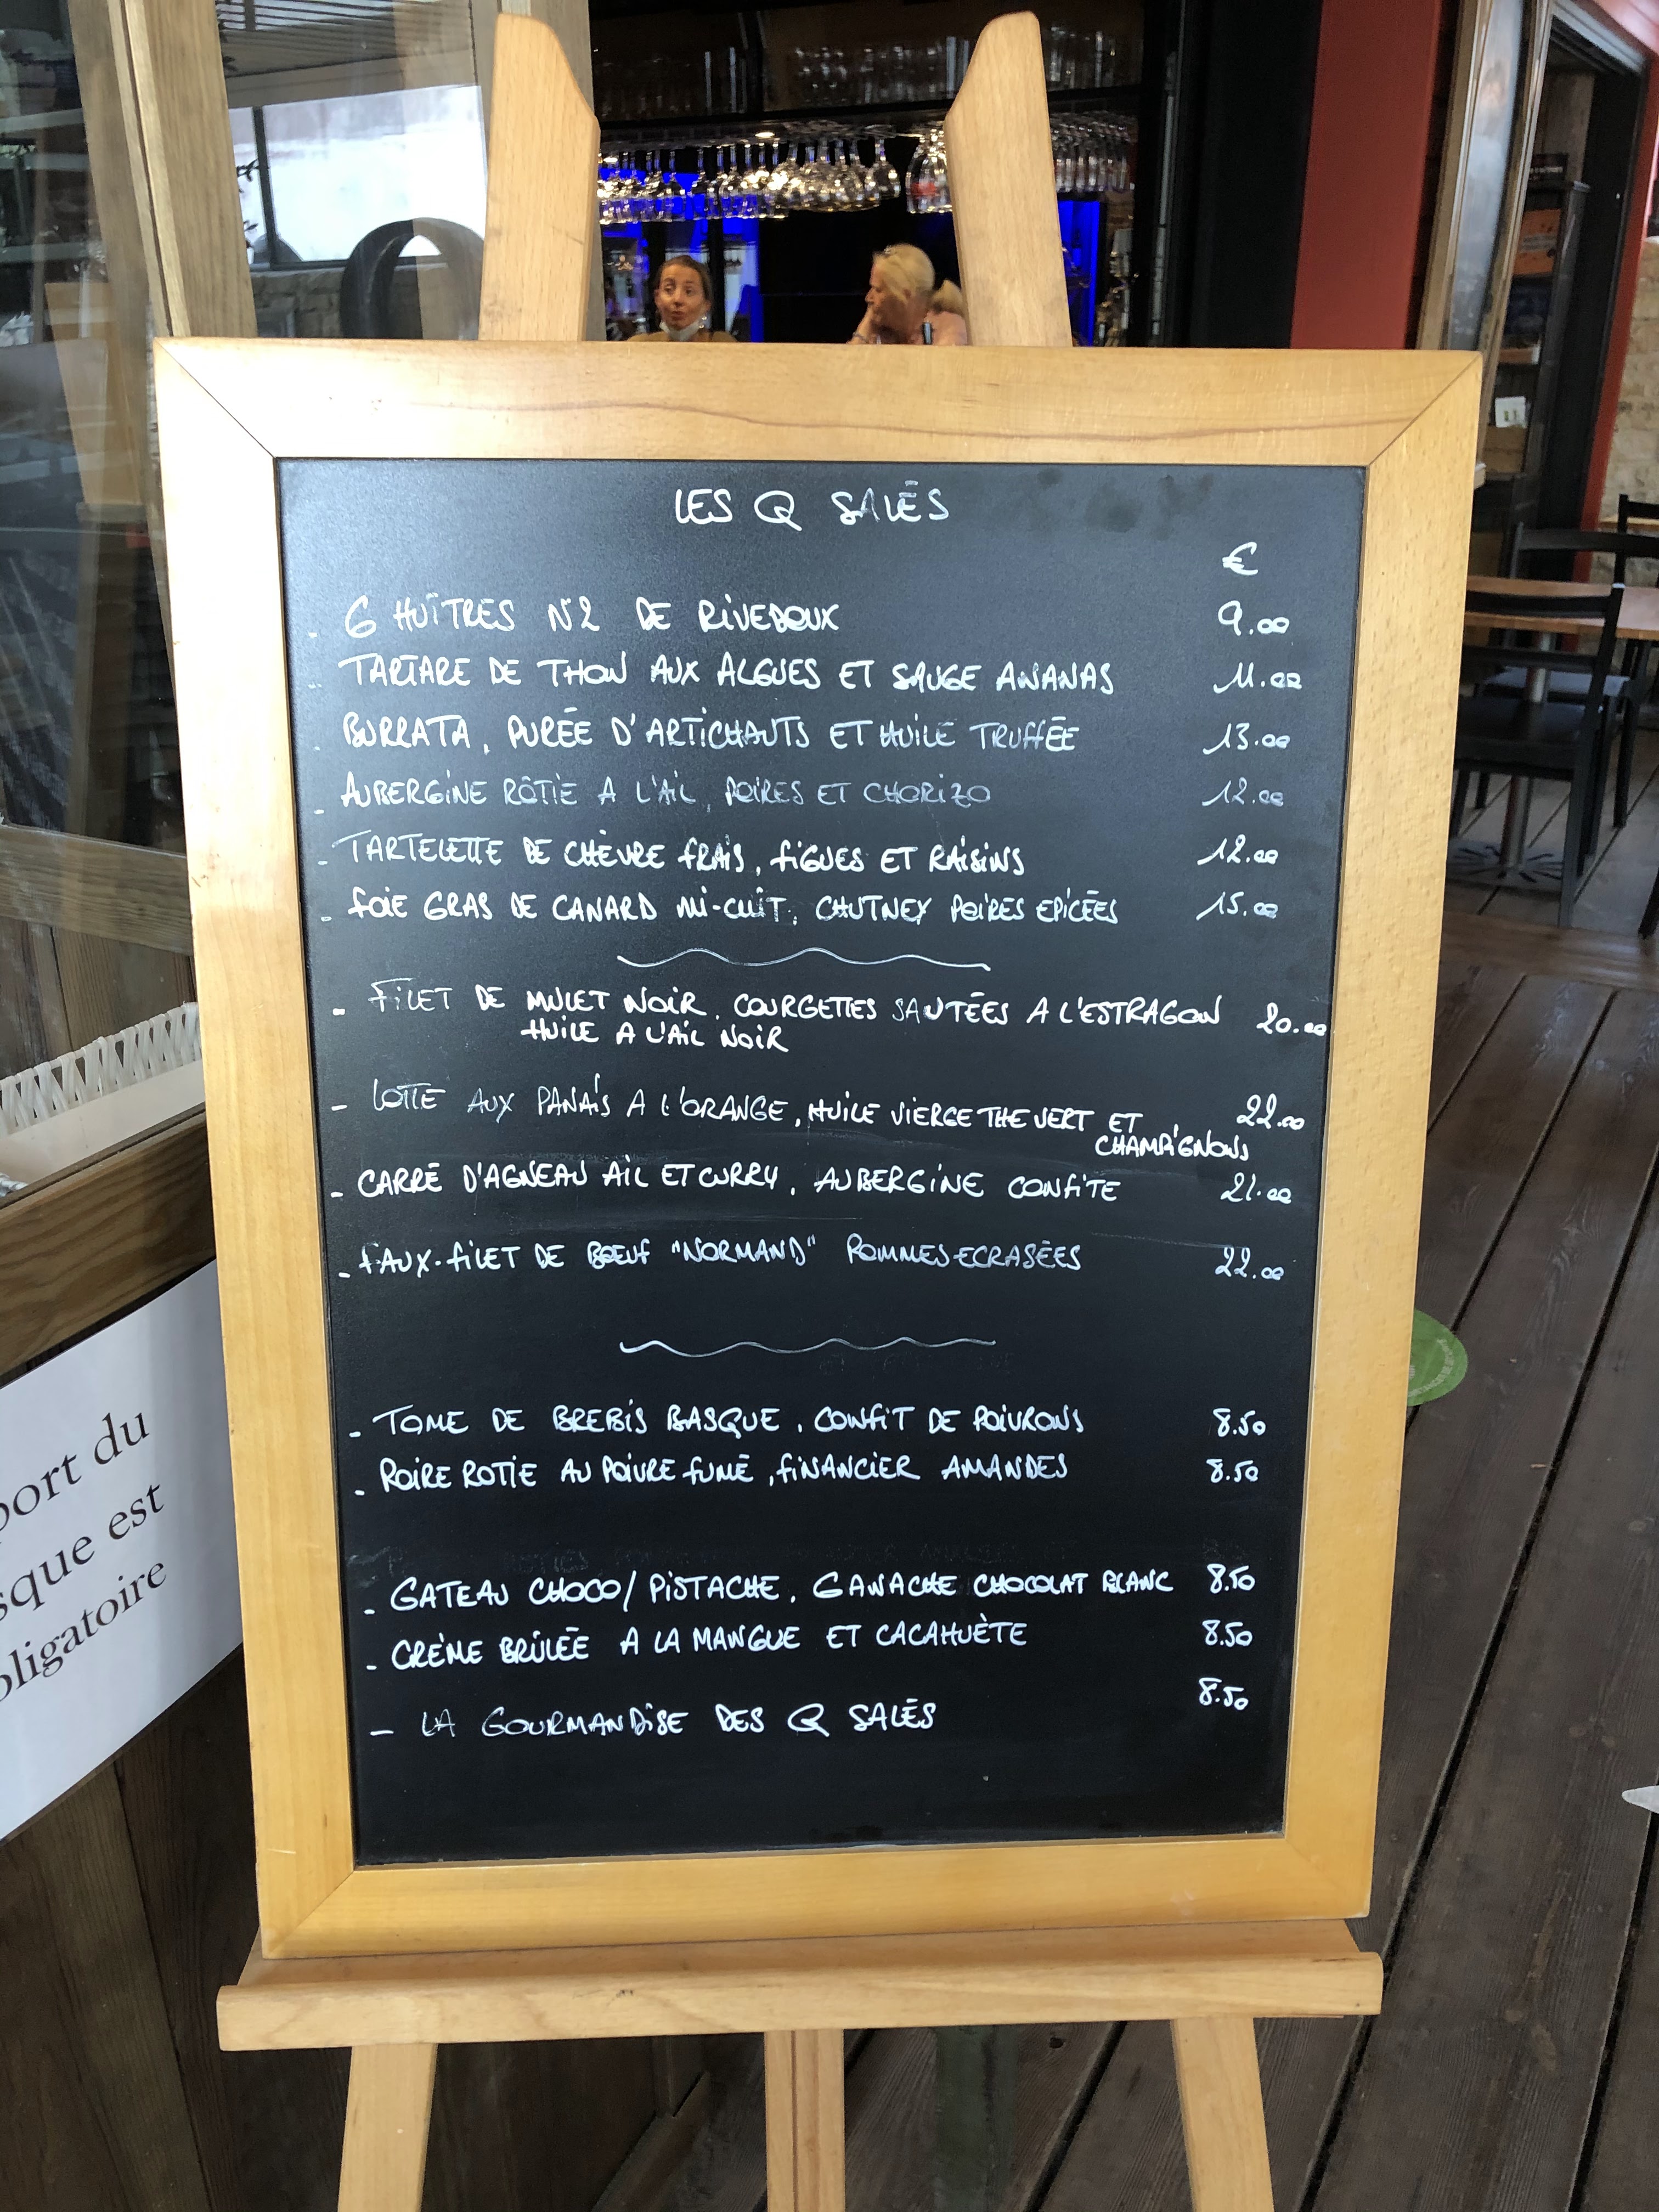 LES Q SALÉS
€
- 6 HUÎTRES N°2 DE RIVEDOUX 9.00
- TARTARE DE THON AUX ALGUES ET SAUGE ANANAS 11.00
- BURRATA, PURÉE D'ARTICHAUTS ET HUILE TRUFFÉE 13.00
- AUBERGINE RÔTIE A L'AIL, POIRES ET CHORIZO 12.00
- TARTELETTE DE CHÈVRE FRAIS, FIGUES ET RAISINS 12.00
- FOIE GRAS DE CANARD MI-CUIT, CHUTNEY POIRES EPICÉES 15.00
- FILET DE MULET NOIR, COURGETTES SAUTÉES A L'ESTRAGON 20.00
HUILE A L'AIL NOIR
- LOTTE AUX PANAIS A L'ORANGE, HUILE VIERGE THE VERT ET 22.00
CHAMPIGNONS
- CARRÉ D'AGNEAU AIL ET CURRY, AUBERGINE CONFITE 21.00
- FAUX-FILET DE BOEUF "NORMAND" POMMES ECRASÉES 22.00
- TOME DE BREBIS BASQUE, CONFIT DE POIVRONS 8.50
- POIRE ROTIE AU POIVRE FUMÉ, FINANCIER AMANDES 8.50
- GATEAU CHOCO/PISTACHE, GANACHE CHOCOLAT BLANC 8.50
- CRÈME BRÛLÉE A LA MANGUE ET CACAHUÈTE 8.50
- LA GOURMANDISE DES Q SALÉS 8.50
port du
sque est
bligatoire